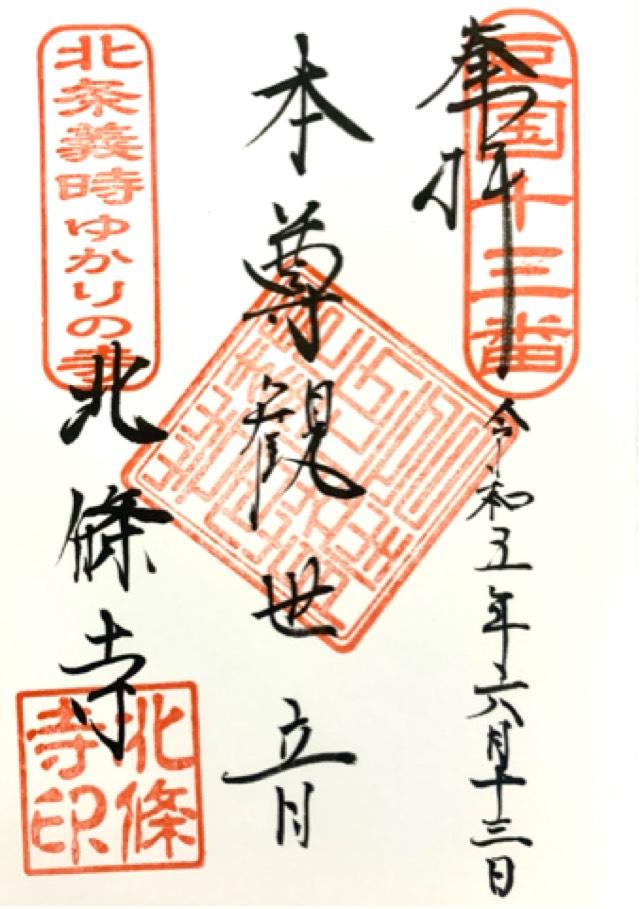 豆国十三番
奉拝
令和五年六月十三日
本尊観世音
北条義時ゆかりの寺
北條寺
北條寺印